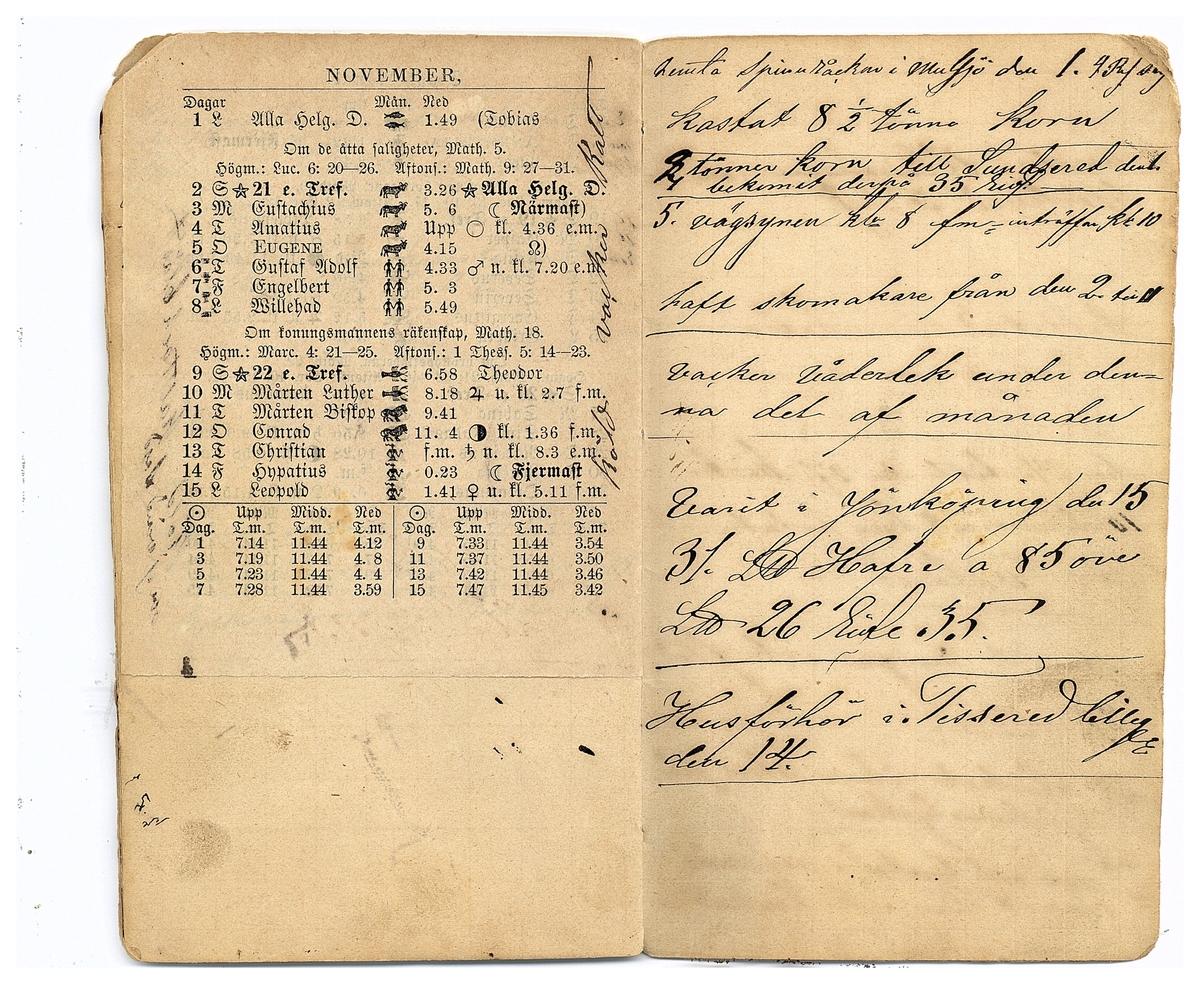 NOVEMBER,
Dagar Mån. Ned
1 L Alla Helg. D. 1.49 (Tobias
Om de åtta saligheter, Math. 5.
Högm.: Luc. 6: 20—26. Aftons.: Math. 9: 27—31.
2 S ☆ 21 e. Tref. 3.26 ☆ Alla Helg. D.
3 M Eustachius 5. 6 ☾ Närmast)
4 T Amatius Upp ○ kl. 4.36 e.m.
5 O EUGENE 4.15 ☊)
6 T Gustaf Adolf 4.33 ♂ n. kl. 7.20 e.m.
7 F Engelbert 5. 3
8 L Willehad 5.49
Om konungsmannens räkenskap, Math. 18.
Högm.: Marc. 4: 21—25. Aftons.: 1 Thess. 5: 14—23.
9 S ☆ 22 e. Tref. 6.58 Theodor
10 M Mårten Luther 8.18 ♃ u. kl. 2.7 f.m.
11 T Mårten Biskop 9.41
12 O Conrad 11. 4 ◑ kl. 1.36 f.m.
13 T Christian f.m. ♄ n. kl. 8.3 e.m.
14 F Hypatius 0.23 ☾ Fjermast
15 L Leopold 1.41 ♀ u. kl. 5.11 f.m.
☉ Upp Midd. Ned ☉ Upp Midd. Ned
Dag. T.m. T.m. T.m. Dag. T.m. T.m. T.m.
1 7.14 11.44 4.12 9 7.33 11.44 3.54
3 7.19 11.44 4. 8 11 7.37 11.44 3.50
5 7.23 11.44 4. 4 13 7.42 11.44 3.46
7 7.28 11.44 3.59 15 7.47 11.45 3.42
vacker Kall
hemta Spinnråcken i Mulsjö den 1.
kastat 8 ½ tönna Korn
2 tönner korn till Sundsered
bekomet derpå 35 rig
5. vägsynen kl 8 fm= inträffar kl 10
haft skomakare från den 2 till
vacker väderlek under den=
na del af månaden
Varit i Jönköping den 15
31. LU Hafre a 85 öre
LU 26 35.
Husförhör i Tissered
den 14.